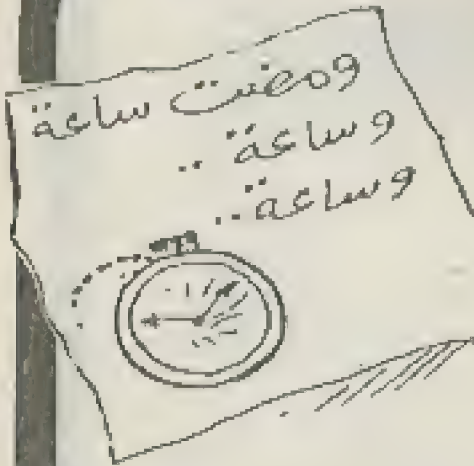 ومضت ساعة
وساعة ..
وساعة ..